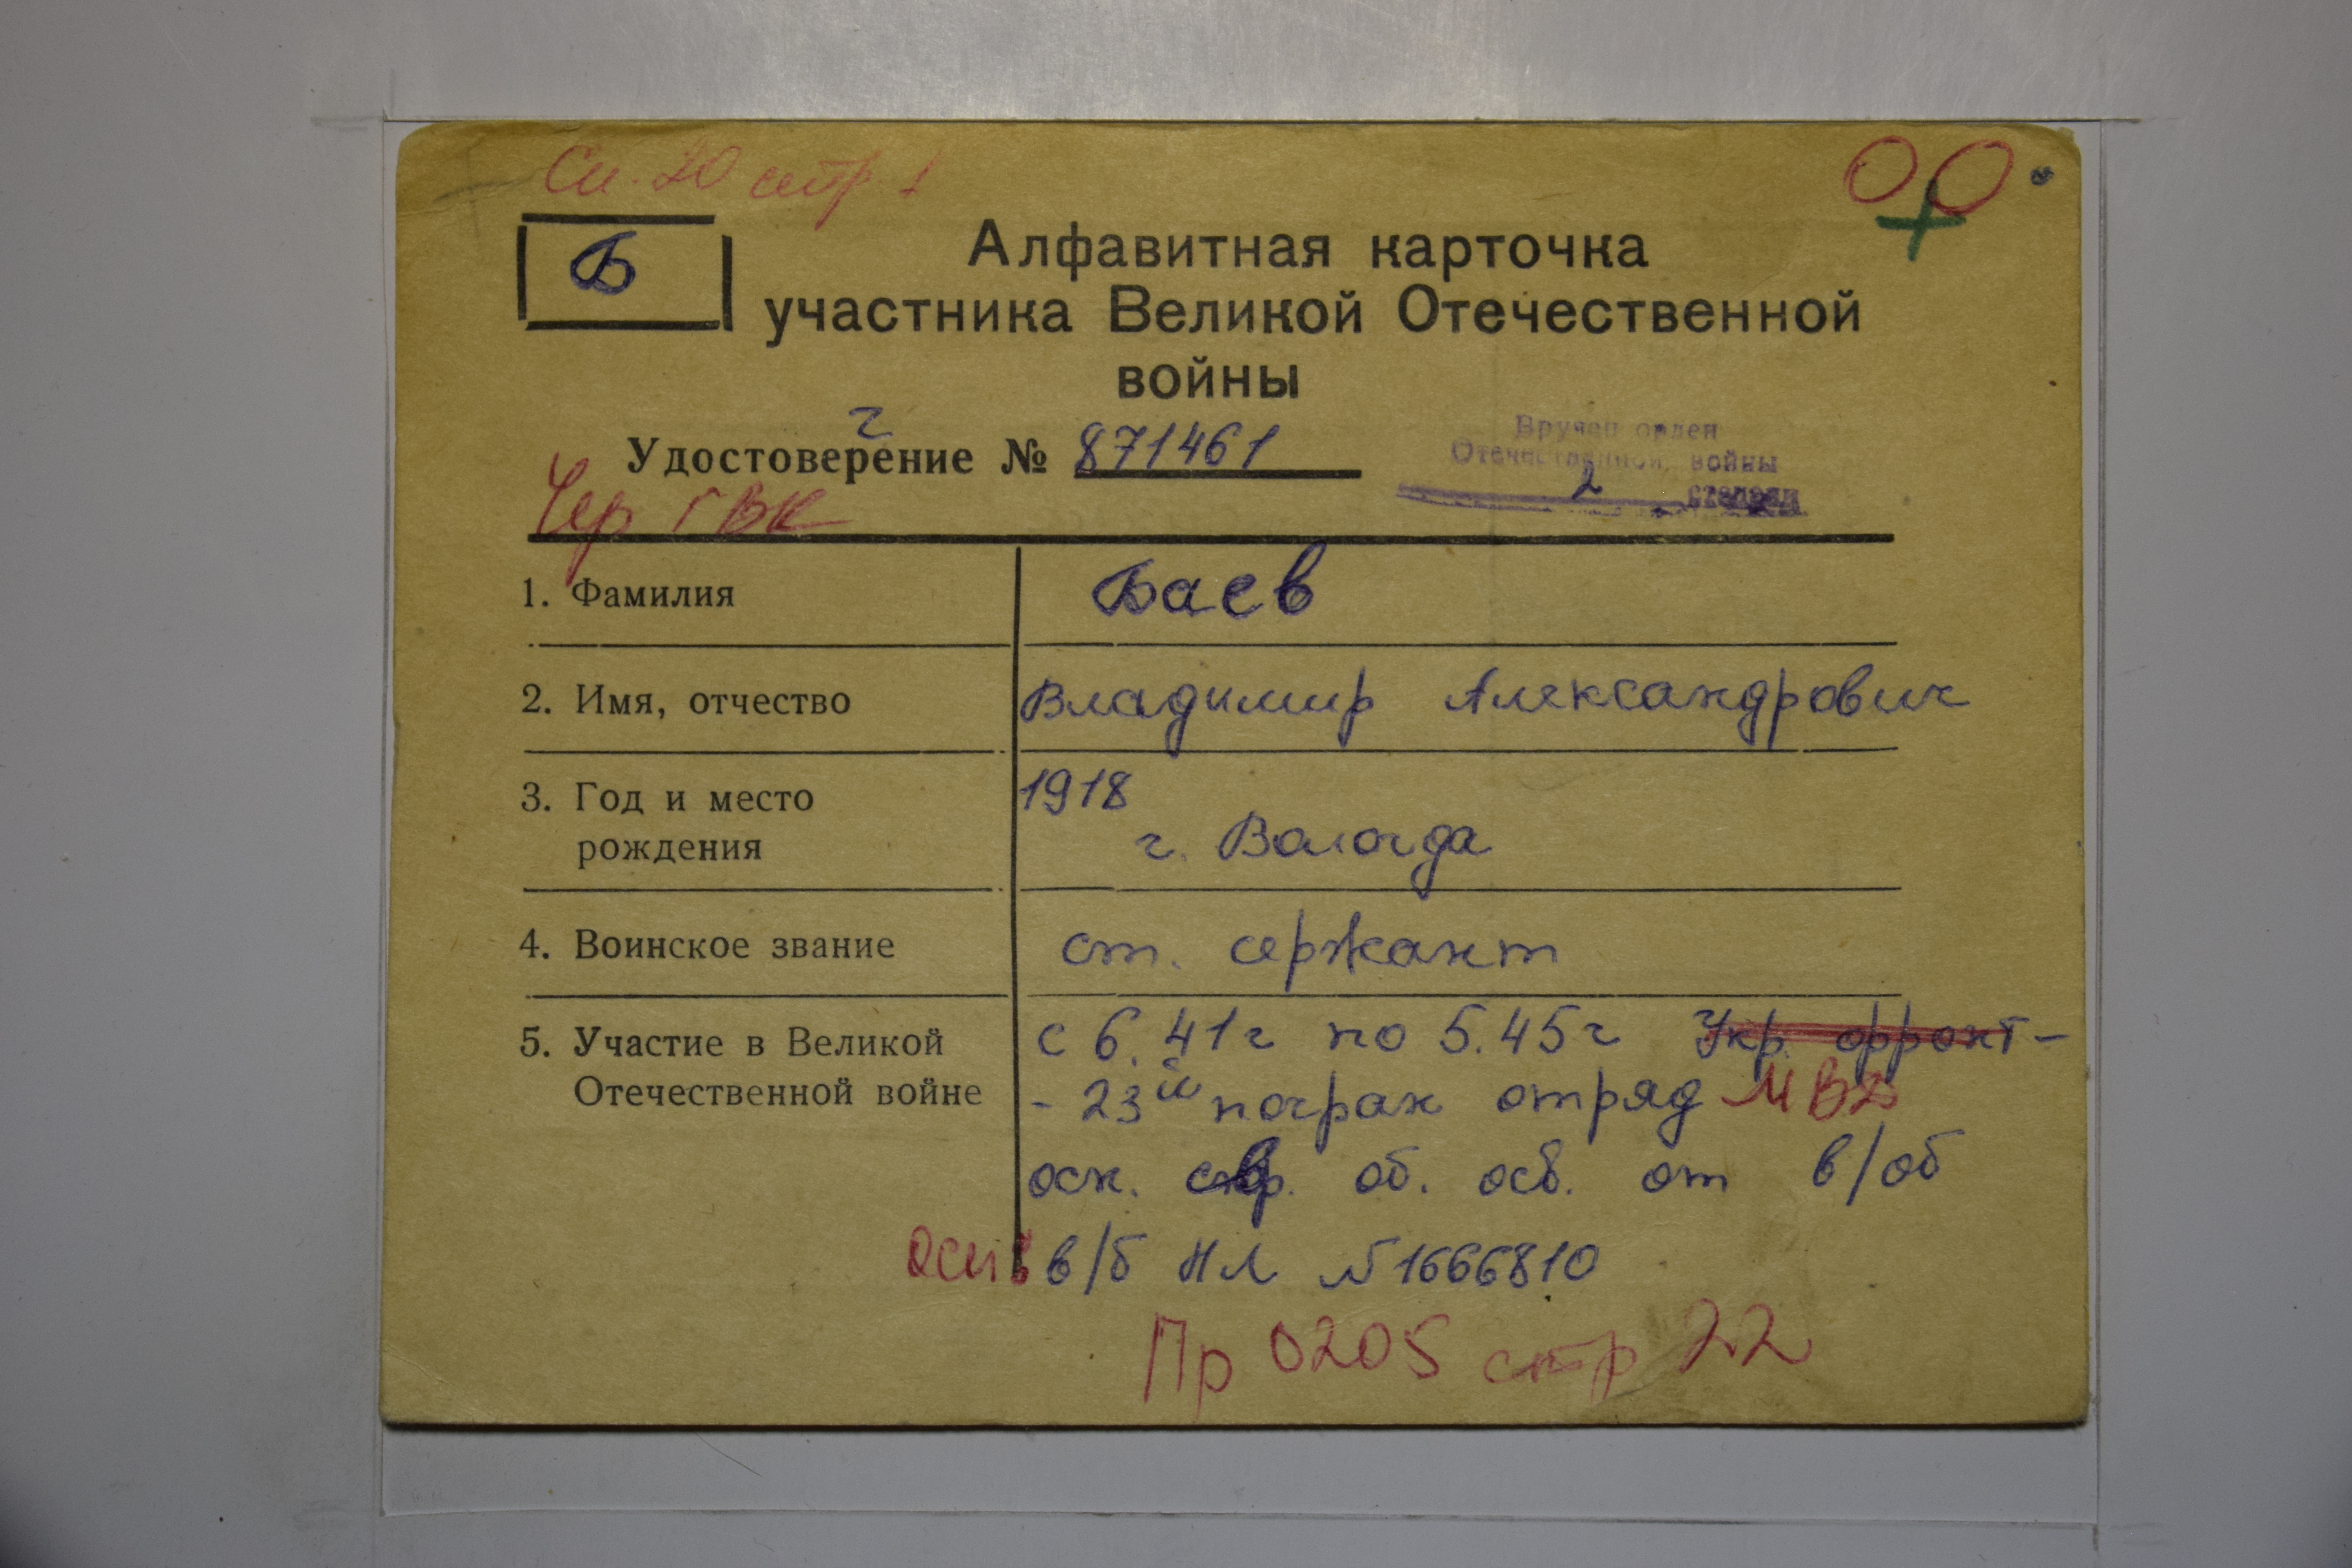 Сп. 20 стр 1
ОО
Б
Алфавитная карточка
участника Великой Отечественной
войны
Г
Удостоверение № 871461
Вручен орден
Отечественной войны
2 степени
Чер ГВК
1. Фамилия Баев
2. Имя, отчество Владимир Александрович
3. Год и место 1918
рождения г. Вологда
4. Воинское звание ст. сержант
5. Участие в Великой с 6.41г по 5.45г Укр. фронт-
Отечественной войне - 23й погран отряд МВД
осн. об. осв. от в/об
в/б НЛ №1666810
Пр 0205 стр 22